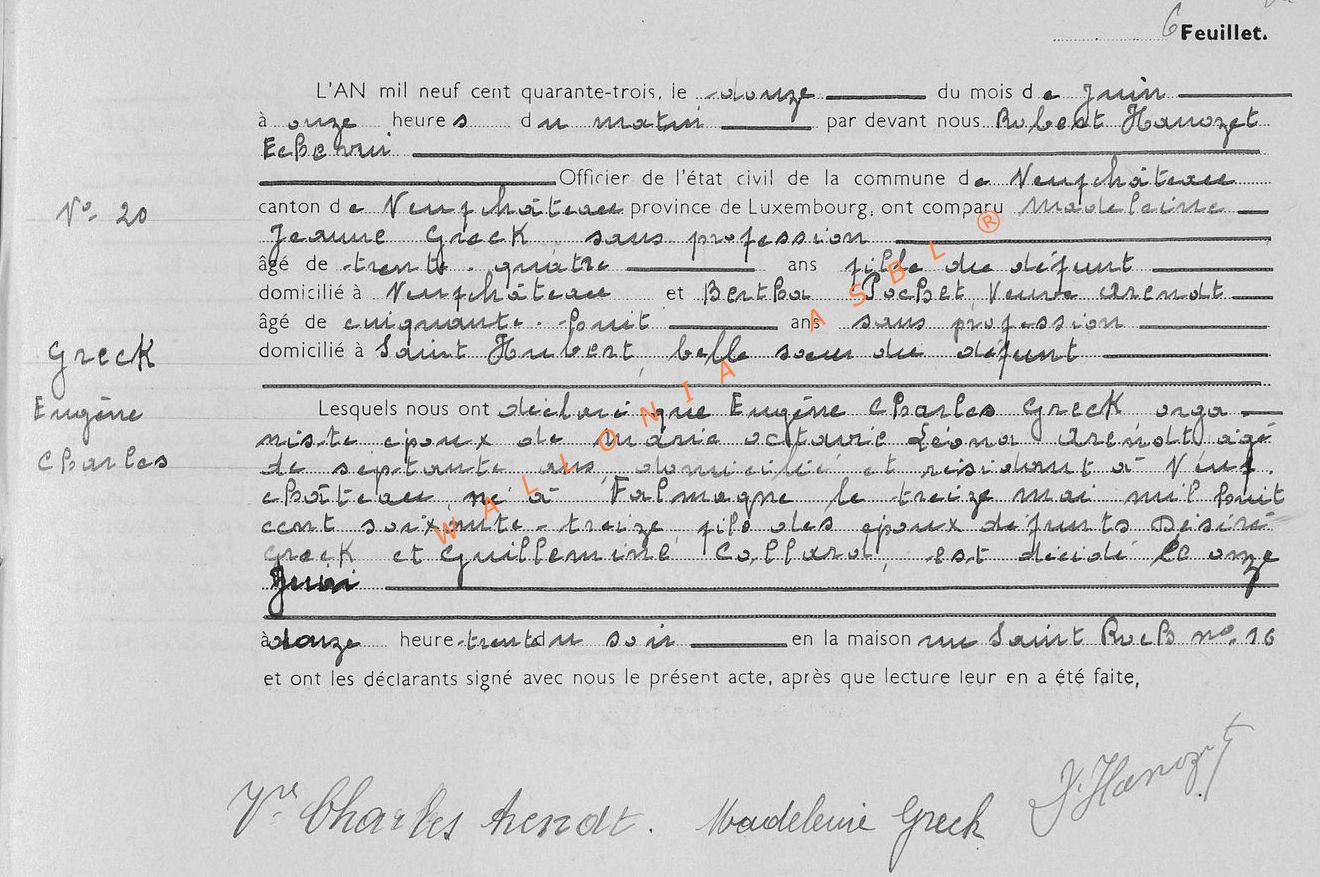 6 Feuillet.
L'AN mil neuf cent quarante-trois, le douze du mois de Juin
à onze heures du matin par devant nous Robert Hanozet
Echevin
Officier de l'état civil de la commune de Neufchâteau
N° 20
canton de Neufchâteau province de Luxembourg, ont comparu Madeleine
Jeanne Greck sans profession
âgé de trente-quatre ans fille du défunt
domicilié à Neufchâteau et Bertha Pochet Veuve Arendt
âgé de cinquante-huit ans sans profession
domicilié à Saint Hubert, belle sœur du défunt
Greck
Eugène
Charles
Lesquels nous ont déclaré que Eugène Charles Greck orga
niste époux de Marie Octavie Léona Arendt âgé
de septante ans, domicilié et résidant à Neuf-
château né à Falmagne le treize mai mil huit
cent soixante-treize fils des époux défunts Désiré
Greck et Guillemine Collard, est décédé le onze
Juin
à douze heure trente du soir en la maison rue Saint Roch n° 16
et ont les déclarants signé avec nous le présent acte, après que lecture leur en a été faite,
Vve Charles Arendt. Madeleine Greck Hanozet
WALLONIA ASBL ®